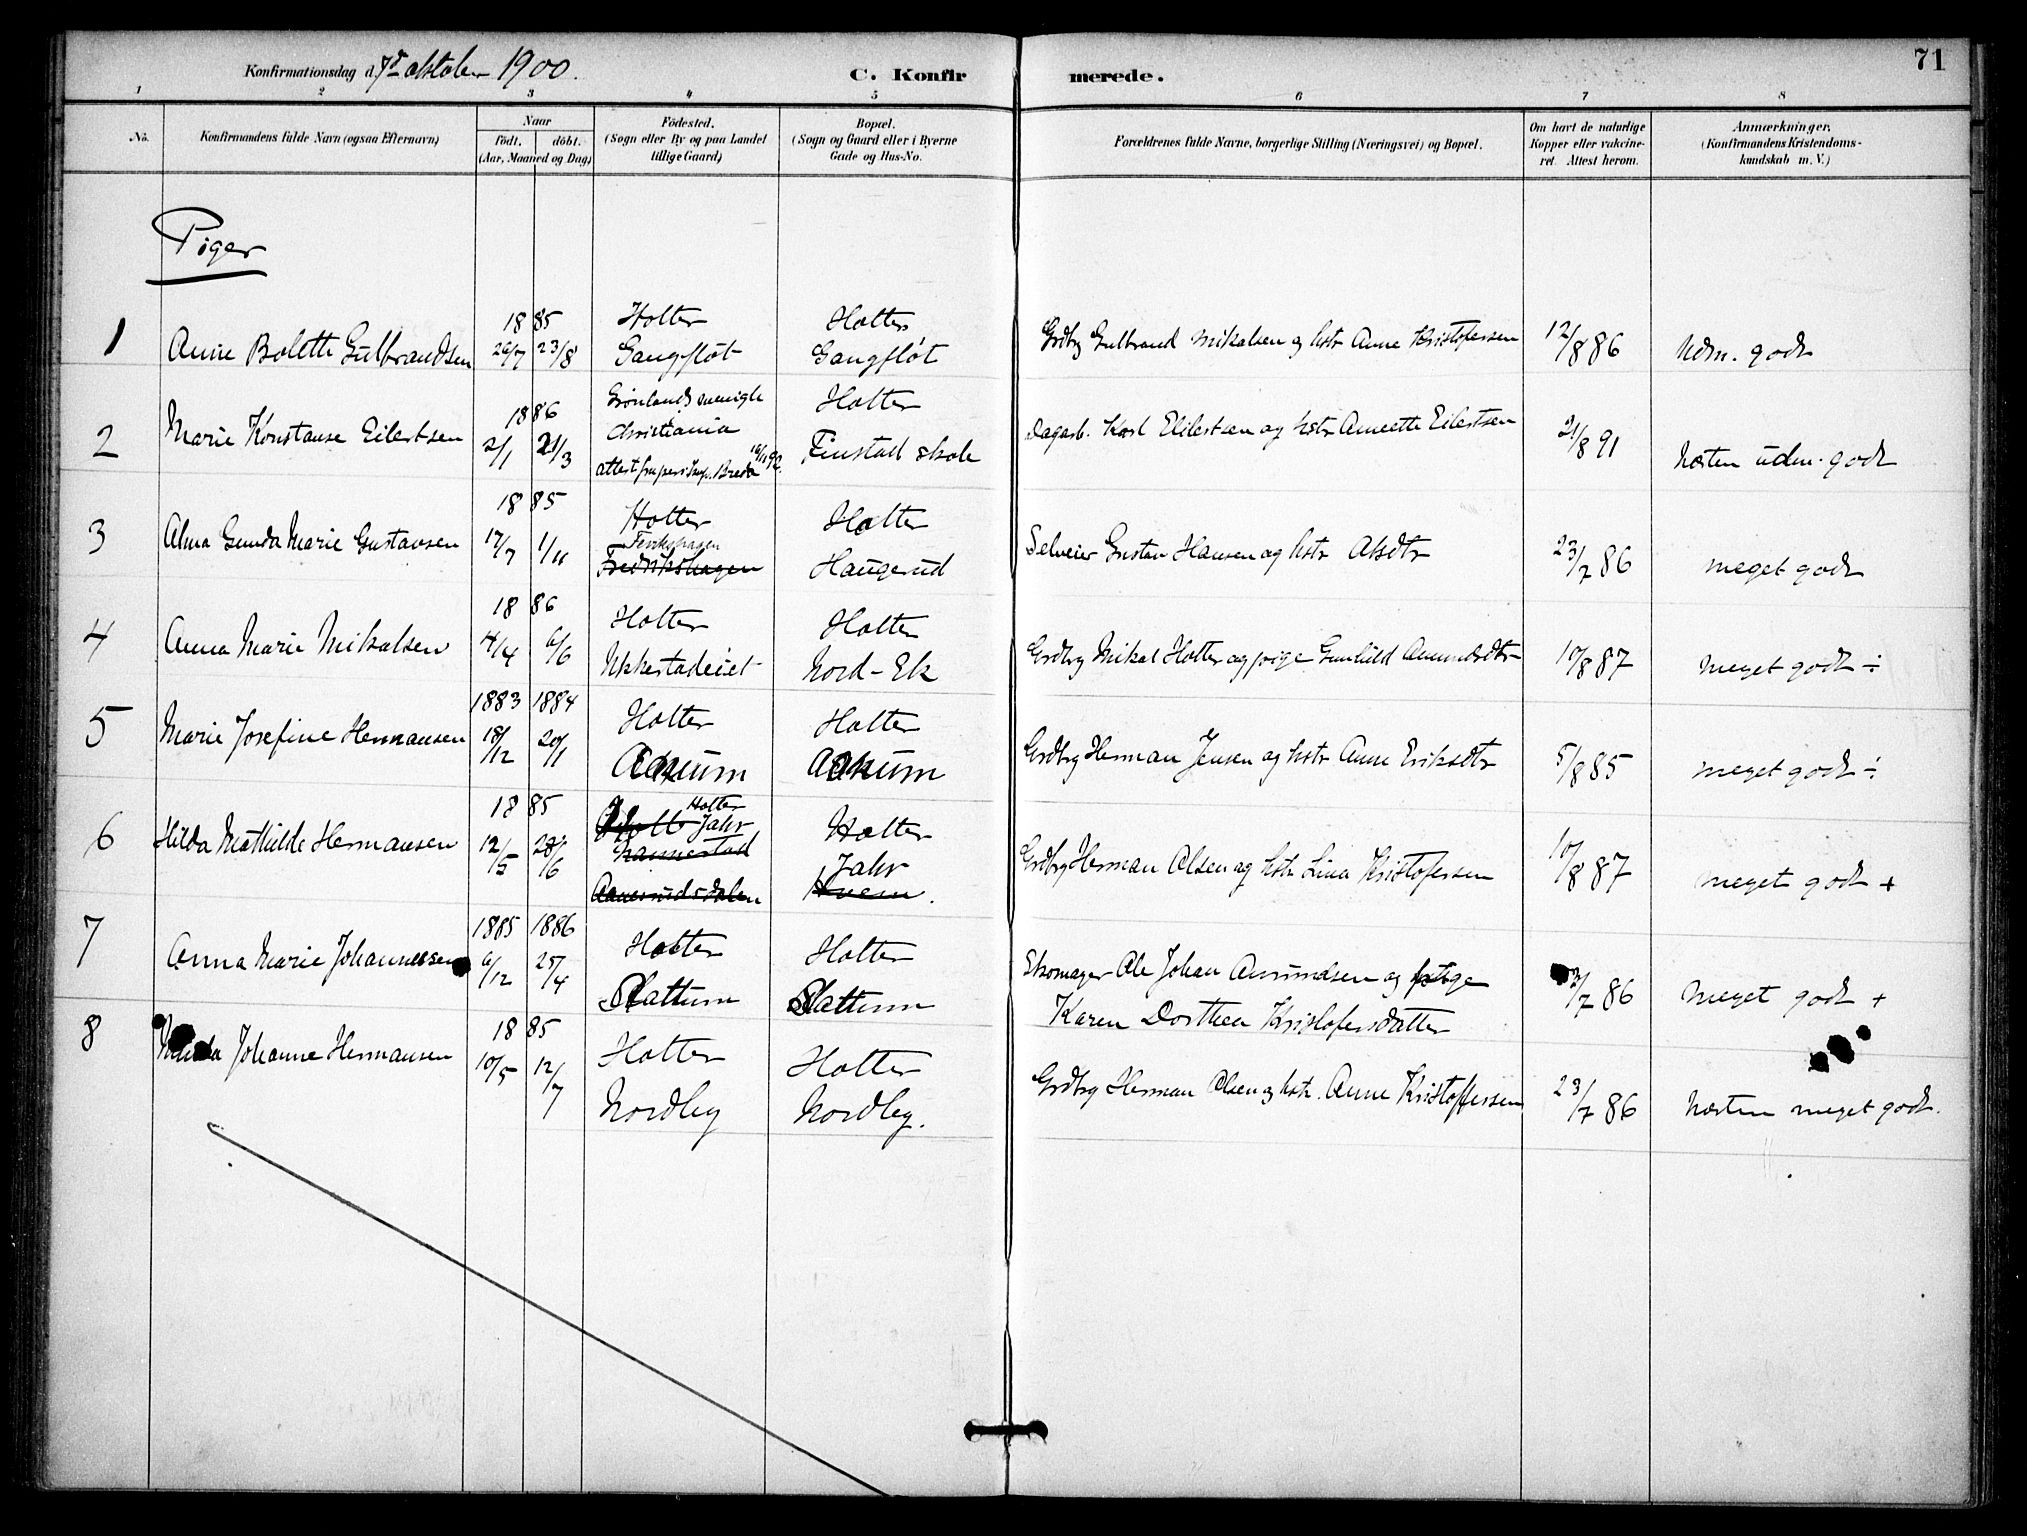 Konfirmationsdag d. 7de oktober 1900. C. Konfirmerede. 71
1 2 3 4 5 6 7 8
No. Konfirmandens fulde Navn (ogsaa Efternavn) Naar födt. döbt. (Aar, Maaned og Dag) Födested. (Sogn eller By og paa Landet tillige Gaard) Bopæl. (Sogn og Gaard eller i Byerne Gade og Hus-No. Forældrenes fulde Navne, borgerlige Stilling (Næringsvei) og Bopæl. Om havt de naturlige Kopper eller vakcineret. Attest herom. Anmærkninger. (Konfirmandens Kristendomskundskab m. V.)
Piger
1885 Holter Holter
1 Anne Bolette Gulbrandsen 26/7 23/8 Gangfløt Gangfløt Grdbr Gulbrand Mikalsen og hstr Anne Kristofersen 12/8 86 Udm. godt
1886 Grønlands menigh Christiania Holter
2 Marie Konstanse Eilertsen 2/1 21/3 Finstad skole Dagarb. Karl Eilertsen og hstr Annette Eilertsen 21/8 91 Næsten udm. godt
1885 Holter Holter
3 Alma Gunda Marie Gustavsen 17/7 1/11 Fredrikshagen Haugerud Selveier Gustav Hansen og hstr Olsdtr 23/7 86 meget godt
1886 Holter Holter
4 Anna Marie Mikalsen 4/4 6/6 Ukkestadeiet Nord-Ek Grdbr Mikal Holter og pige Gunhild Amundsdtr 10/8 87 Meget godt ÷
1883 1884 Holter Holter
5 Marie Josefine Hermansen 18/12 20/1 Aanum Aanum Grdbr Herman Jensen og hstr Anne Eriksdtr 5/8 85 meget godt ÷
1885 Holter Jahr Holter
6 Hilda Mathilde Hermansen 12/5 28/6 Nannestad Jahr Grdbr Herman Olsen og hstr Lina Kristofersen 10/8 87 meget godt +
Aanerudsdalen
1885 1886 Holter Holter
7 Anna Marie Johannessen 6/12 25/4 Slattum Slattum Skomager Ole Johan Amundsen og pige 86 Meget godt +
Karen Dorthea Kristofersdatter
1885 Holter Holter
8 Johanne Hermansen 10/5 12/7 Nordby Nordby. Grdbr Herman Olsen og hstr. Anne Kristoffersen 23/7 86 Næsten meget godt.